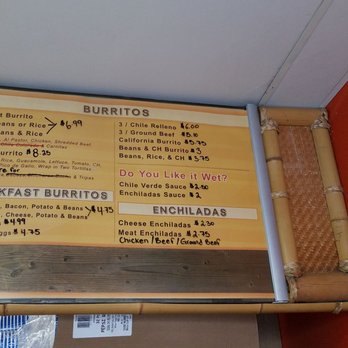 BURRITOS
t Burrito
ans or Rice
$6.99
ans & Rice
Al Pastor, Chicken, Shredded Beef
Burrito $8.25
Rice, Guacamole, Lettuce, Tomato, Ch
Pico de Gallo, Wrap in Two Tortillas
3 / Chile Relleno $6.00
3 / Ground Beef $5.10
California Burrito $5.75
Beans & CH Burrito $3
Beans, Rice, & CH $3.75
Do You Like it Wet?
Chile Verde Sauce $2.50
Enchiladas Sauce $2
KFAST BURRITOS
, Bacon, Potato & Beans
$4.75
, Cheese, Potato & Beans
$4.99
ggs $4.75
ENCHILADAS
Cheese Enchiladas $2.50
Meat Enchiladas $2.75
Chicken/Beef/Ground Beef